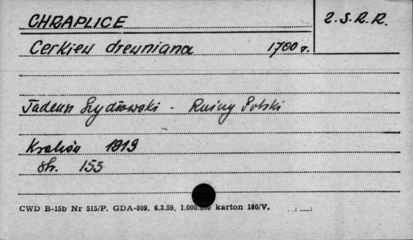 CHRAPLICE
Z.S.R.R.
Cerkiew drewniana 1700 r.
Tadeusz Szydłowski - Ruiny Polski
Kraków 1919
str. 153
CWD B-15b Nr 515/P. GDA-809. 6.3.59. 1.000.000 karton 180/V.